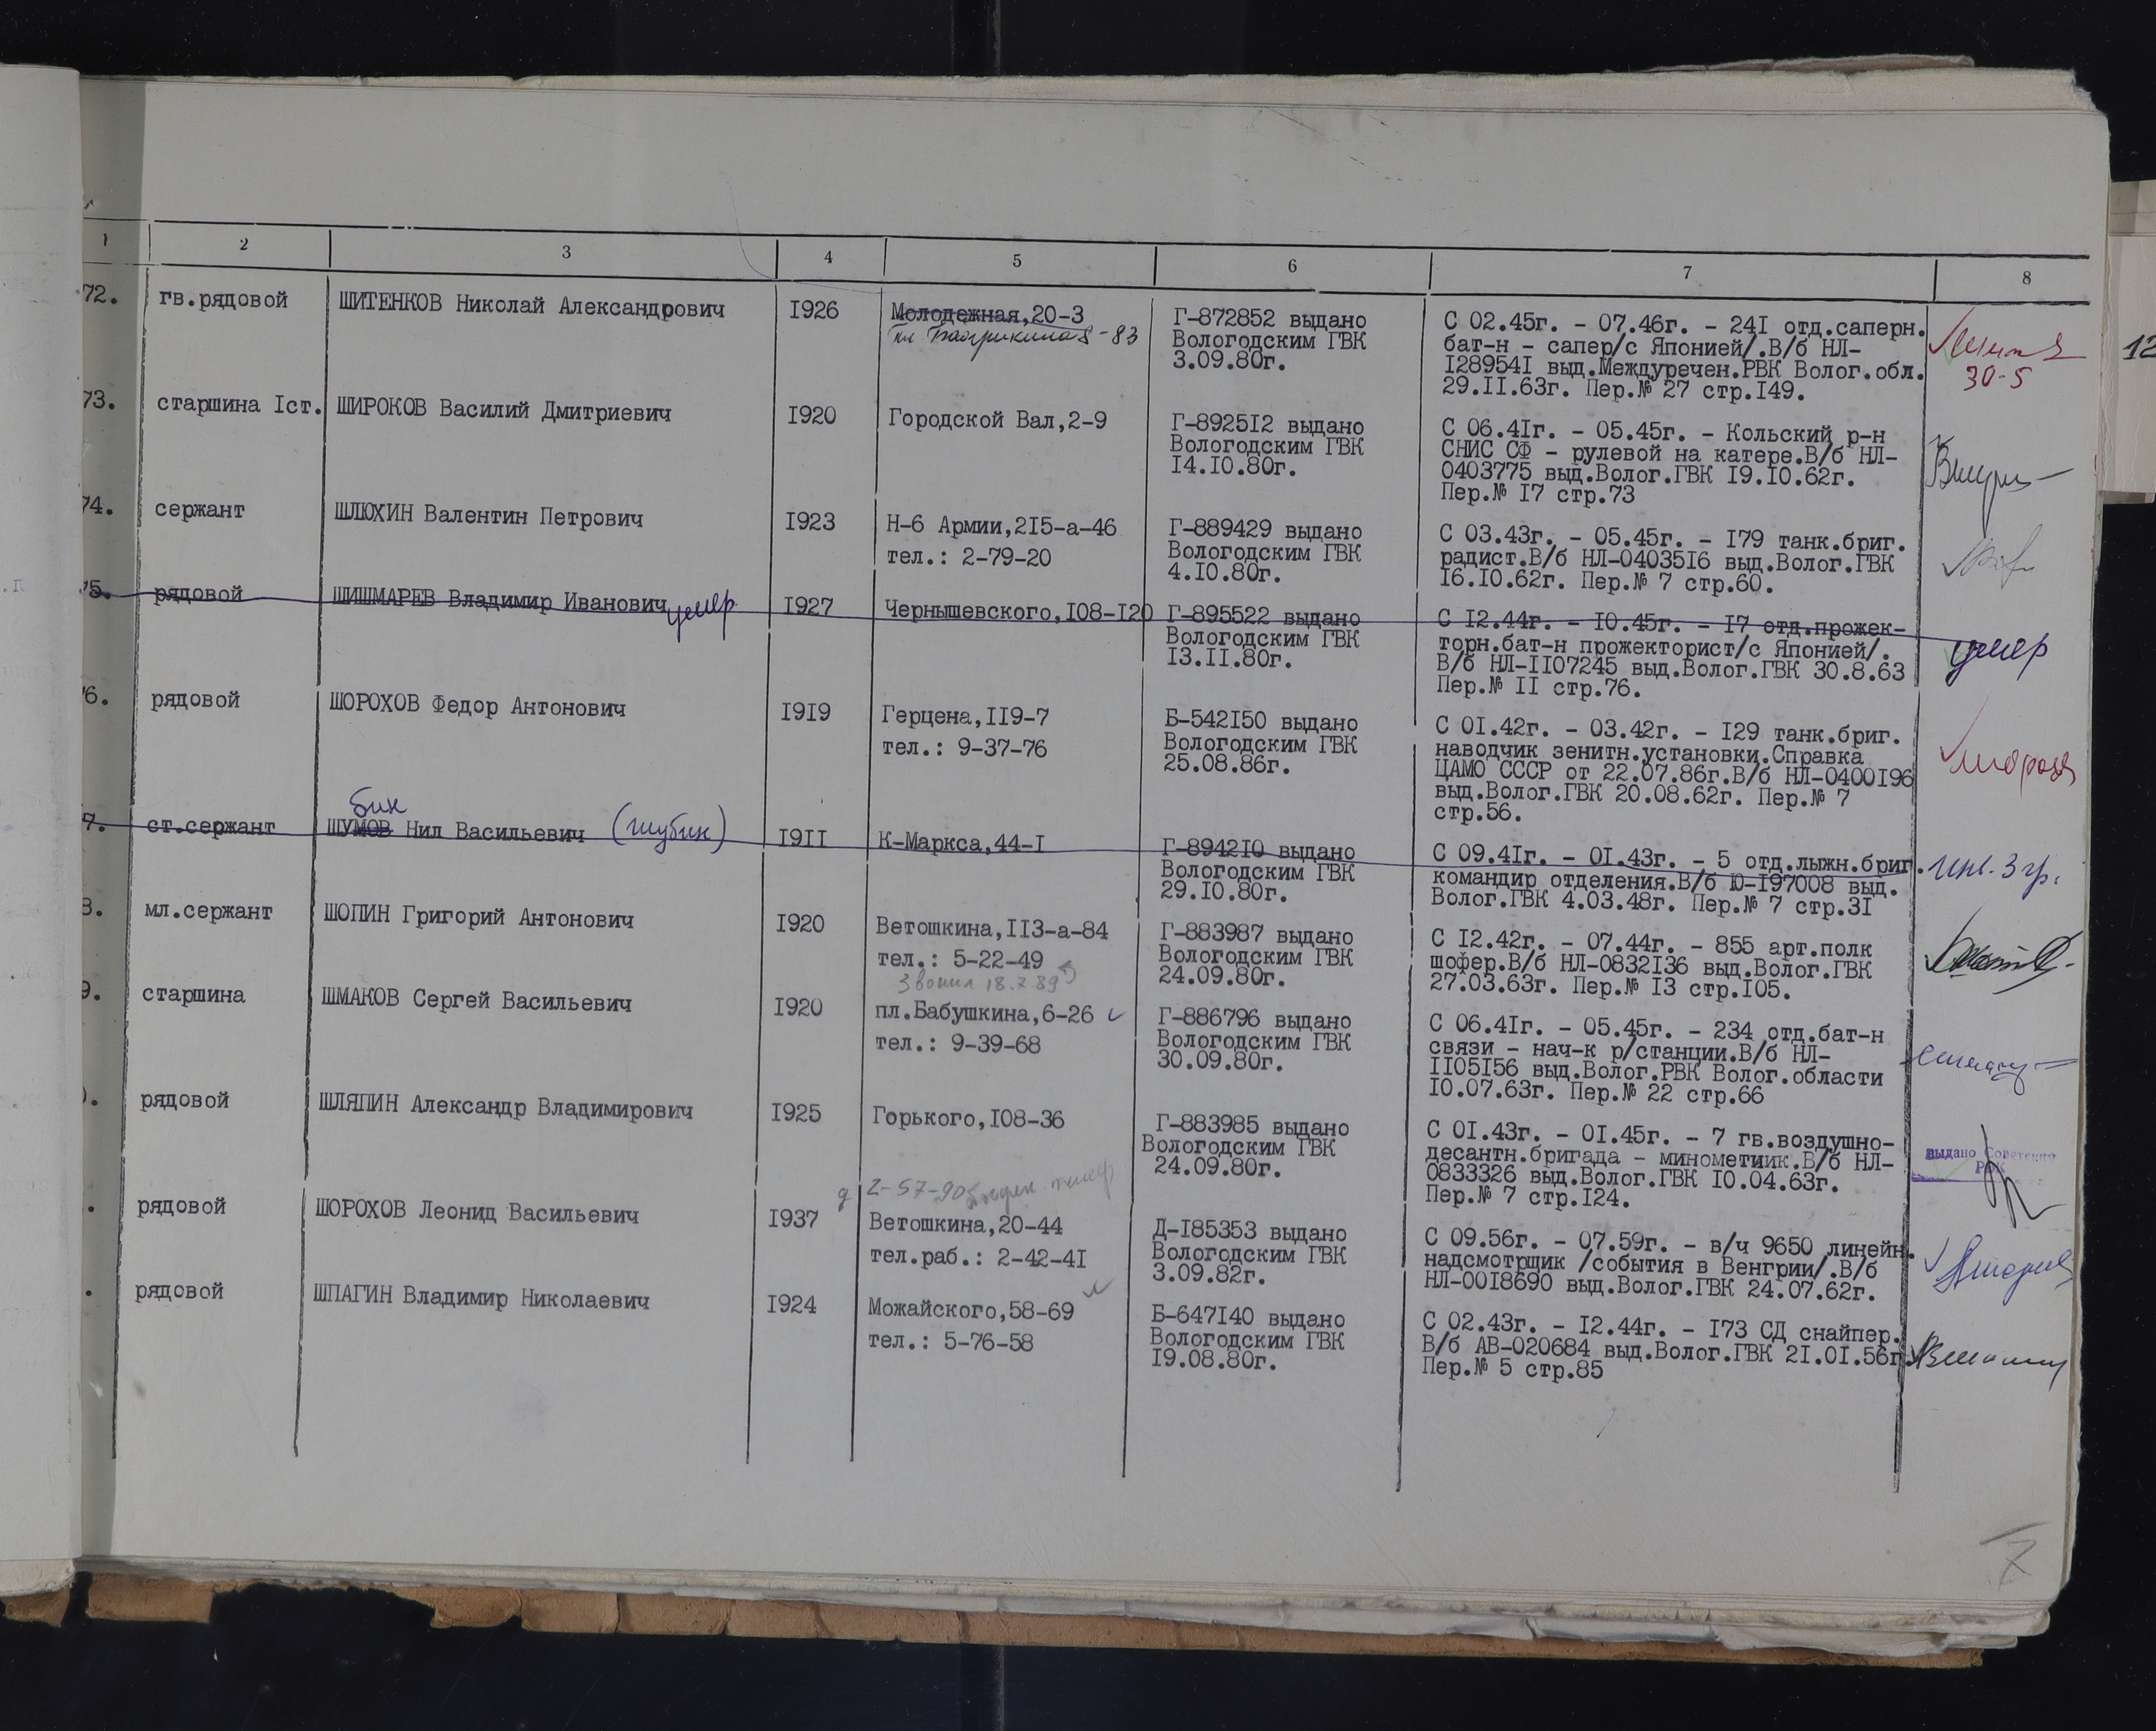 1 2 3 4 5 6 7 8
72. гв.рядовой ШИТЕНКОВ Николай Александрович I926 Молодежная,20-3 Г-872852 выдано С 02.45г. - 07.46г. - 24I отд.саперн.
-83 Вологодским ГВК бат-н - сапер/с Японией/.В/б НЛ-
3.09.80г. I28954I выд.Междуречен.РВК Волог.обл. 30-5
29.II.63г. Пер.№ 27 стр.I49.
12
73. старшина Iст. ШИРОКОВ Василий Дмитриевич I920 Городской Вал,2-9 Г-8925I2 выдано С 06.4Iг. - 05.45г. - Кольский р-н
Вологодским ГВК СНИС СФ - рулевой на катере.В/б НЛ-
I4.I0.80г. 0403775 выд.Волог.ГВК I9.I0.62г.
Пер.№ I7 стр.73
74. сержант ШЛЮХИН Валентин Петрович I923 Н-6 Армии,2I5-а-46 Г-889429 выдано С 03.43г. - 05.45г. - I79 танк.бриг.
тел.: 2-79-20 Вологодским ГВК радист.В/б НЛ-04035I6 выд.Волог.ГВК
4.I0.80г. I6.I0.62г. Пер.№ 7 стр.60.
75. рядовой ШИШМАРЕВ Владимир Иванович умер I927 Чернышевского,I08-I20 Г-895522 выдано С I2.44г. - I0.45г. - I7 отд.прожек-
Вологодским ГВК торн.бат-н прожекторист/с Японией/. умер
I3.II.80г. В/б НЛ-II07245 выд.Волог.ГВК 30.8.63
Пер.№ II стр.76.
6. рядовой ШОРОХОВ Федор Антонович I9I9 Герцена,II9-7 Б-542I50 выдано С 0I.42г. - 03.42г. - I29 танк.бриг.
тел.: 9-37-76 Вологодским ГВК наводчик зенитн.установки.Справка
25.08.86г. ЦАМО СССР от 22.07.86г.В/б НЛ-0400I96
выд.Волог.ГВК 20.08.62г. Пер.№ 7
стр.56.
бин
7. ст.сержант ШУМОВ Нил Васильевич (Шубин) I9II К-Маркса,44-I Г-8942I0 выдано С 09.4Iг. - 0I.43г. - 5 отд.лыжн.бриг. инв. 3 гр.
Вологодским ГВК командир отделения.В/б Ю-I97008 выд.
29.I0.80г. Волог.ГВК 4.03.48г. Пер.№ 7 стр.3I
8. мл.сержант ШОПИН Григорий Антонович I920 Ветошкина,II3-а-84 Г-883987 выдано С I2.42г. - 07.44г. - 855 арт.полк
тел.: 5-22-49 Вологодским ГВК шофер.В/б НЛ-0832I36 выд.Волог.ГВК
Звонил 18.7.89 24.09.80г. 27.03.63г. Пер.№ I3 стр.I05.
9. старшина ШМАКОВ Сергей Васильевич I920 пл.Бабушкина,6-26 Г-886796 выдано С 06.4Iг. - 05.45г. - 234 отд.бат-н
тел.: 9-39-68 Вологодским ГВК связи - нач-к р/станции.В/б НЛ-
30.09.80г. II05I56 выд.Волог.РВК Волог.области
I0.07.63г. Пер.№ 22 стр.66
. рядовой ШЛЯПИН Александр Владимирович I925 Горького,I08-36 Г-883985 выдано С 0I.43г. - 0I.45г. - 7 гв.воздушно-
Вологодским ГВК десантн.бригада - минометчик.В/б НЛ- выдано Советским
24.09.80г. 0833326 выд.Волог.ГВК I0.04.63г. РВК
2-57-90 Пер.№ 7 стр.I24.
. рядовой ШОРОХОВ Леонид Васильевич I937 Ветошкина,20-44 Д-I85353 выдано С 09.56г. - 07.59г. - в/ч 9650 линейн.
тел.раб.: 2-42-4I Вологодским ГВК надсмотрщик /события в Венгрии/.В/б
3.09.82г. НЛ-00I8690 выд.Волог.ГВК 24.07.62г.
. рядовой ШПАГИН Владимир Николаевич I924 Можайского,58-69 Б-647I40 выдано С 02.43г. - I2.44г. - I73 СД снайпер.
тел.: 5-76-58 Вологодским ГВК В/б АВ-020684 выд.Волог.ГВК 2I.0I.56г.
I9.08.80г. Пер.№ 5 стр.85